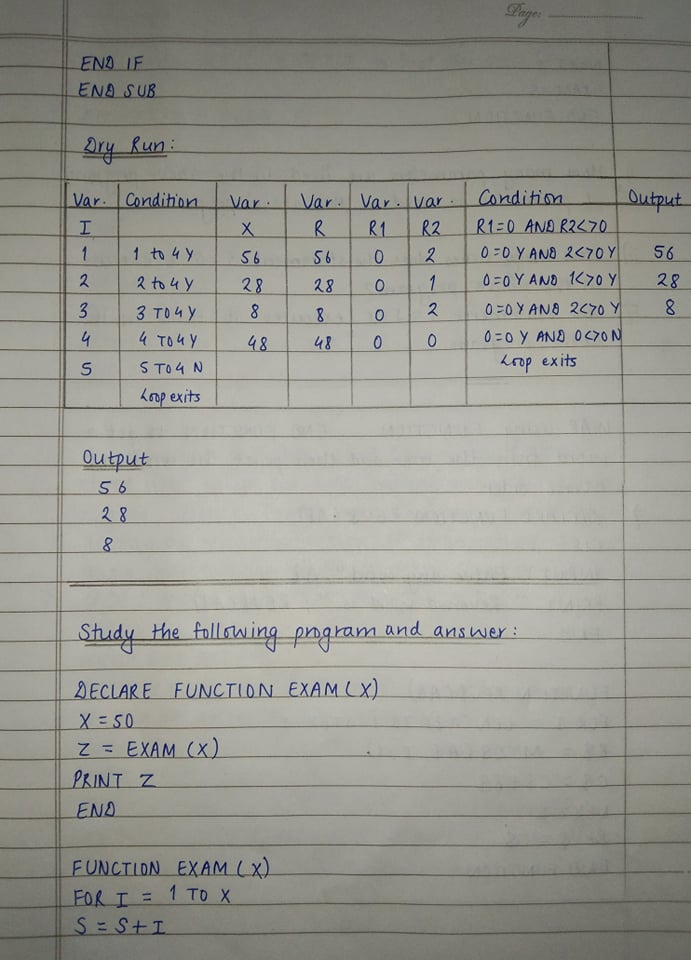 Page:
END IF
END SUB
Dry Run:
Var. Condition Var. Var. Var. Var. Condition Output
I X R R1 R2 R1=0 AND R2<>0
1 1 to 4 Y 56 56 0 2 0=0 Y AND 2<>0 Y 56
2 2 to 4 Y 28 28 0 1 0=0 Y AND 1<>0 Y 28
3 3 TO 4 Y 8 8 0 2 0=0 Y AND 2<>0 Y 8
4 4 TO 4 Y 48 48 0 0 0=0 Y AND 0<>0 N
5 5 TO 4 N Loop exits
Loop exits
Output
56
28
8
Study the following program and answer:
DECLARE FUNCTION EXAM (X)
X = 50
Z = EXAM (X)
PRINT Z
END
FUNCTION EXAM (X)
FOR I = 1 TO X
S = S + I